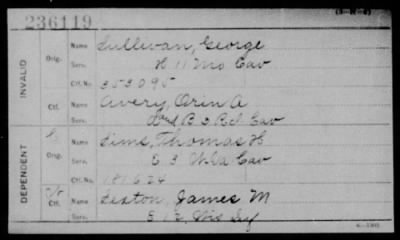 (3-W-2)
236119
Name Sullivan, George
Orig. Serv. H 11 Mo Cav
Ctf. No. 353.095
INVALID
Name Avery, Orin A
Ctf. Serv. B 3 Cav
Name Sims, Thomas H
Orig. Serv. E 3 Cav
Ctf. No. 181624
DEPENDENT
Name Sexton, James M
Ctf. Serv. E 12 Wis Inf